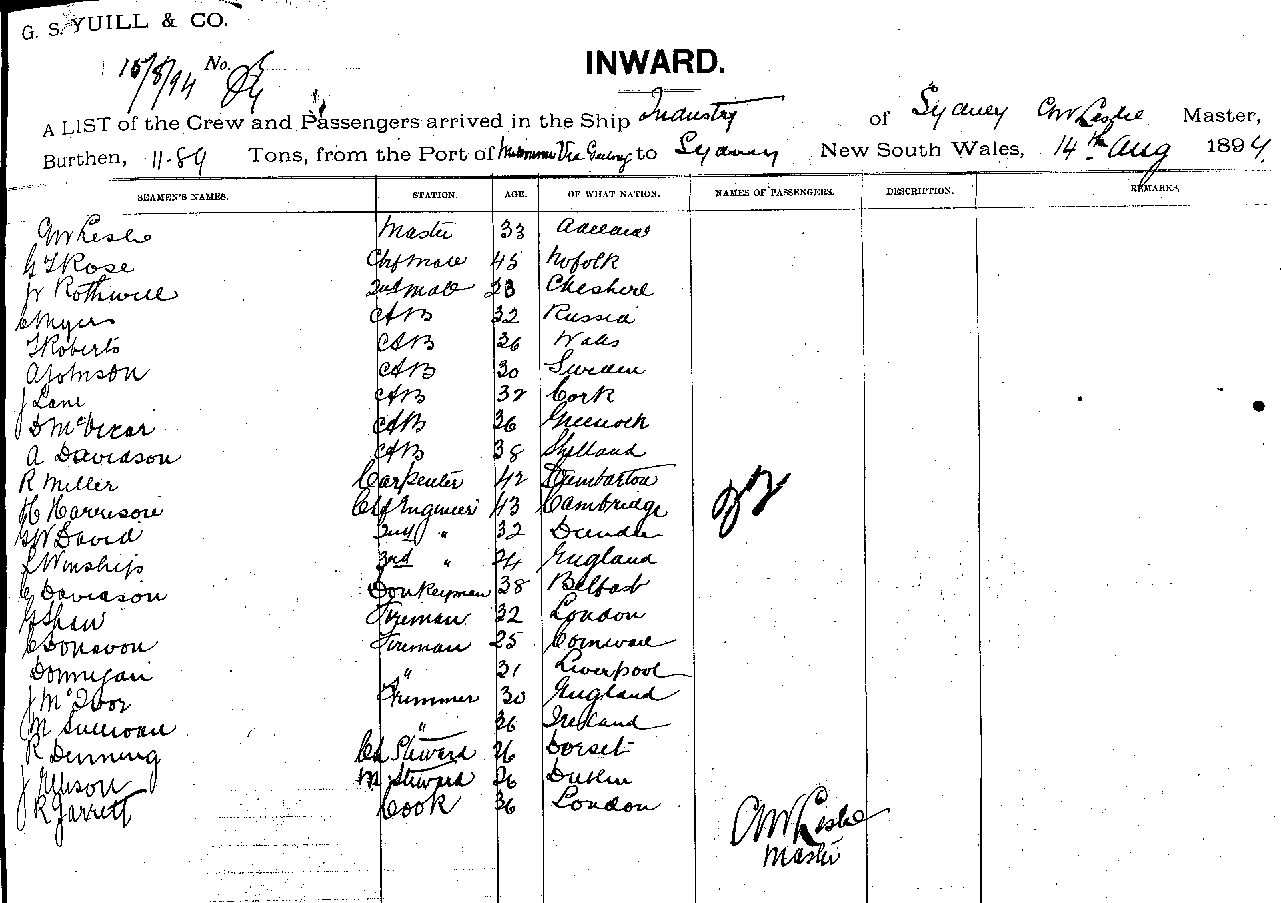 G. S. YUILL & CO.
15/8/94 No.
INWARD.
A LIST of the Crew and Passengers arrived in the Ship Industry of Sydney Leslie Master,
Burthen, 11.89 Tons, from the Port of Via to Sydney New South Wales, 14th Aug 1894.
SEAMEN'S NAMES. STATION. AGE. OF WHAT NATION. NAMES OF PASSENGERS. DESCRIPTION. REMARKS.
Leslie Master 33 Adelaide
Rose Chf Mate 45 Norfolk
Rothwell 2nd Mate 23 Cheshire
Myers AB 32 Russia
Roberts AB 26 Wales
A Johnson AB 30 Sweden
J Lane AB 32 Cork
D McVicar AB 36 Greenock
A Davidson AB 38 Shetland
R Miller Carpenter 42 Dumbarton
H Harrison Chf Engineer 43 Cambridge
David 2nd " 32 Dundee
Winship 3rd " 24 England
C Davidson Donkeyman 38 Belfast
Shaw Fireman 32 London
C Donovon Fireman 25 Cornwall
Donnigan " 31 Liverpool
J McIvor Trimmer 30 England
M Sullivan " 36 Ireland
R Denning Ch Steward 26 Dorset
J Steward 26 Dublin
R Jarrett Cook 36 London
22
Leslie
Master